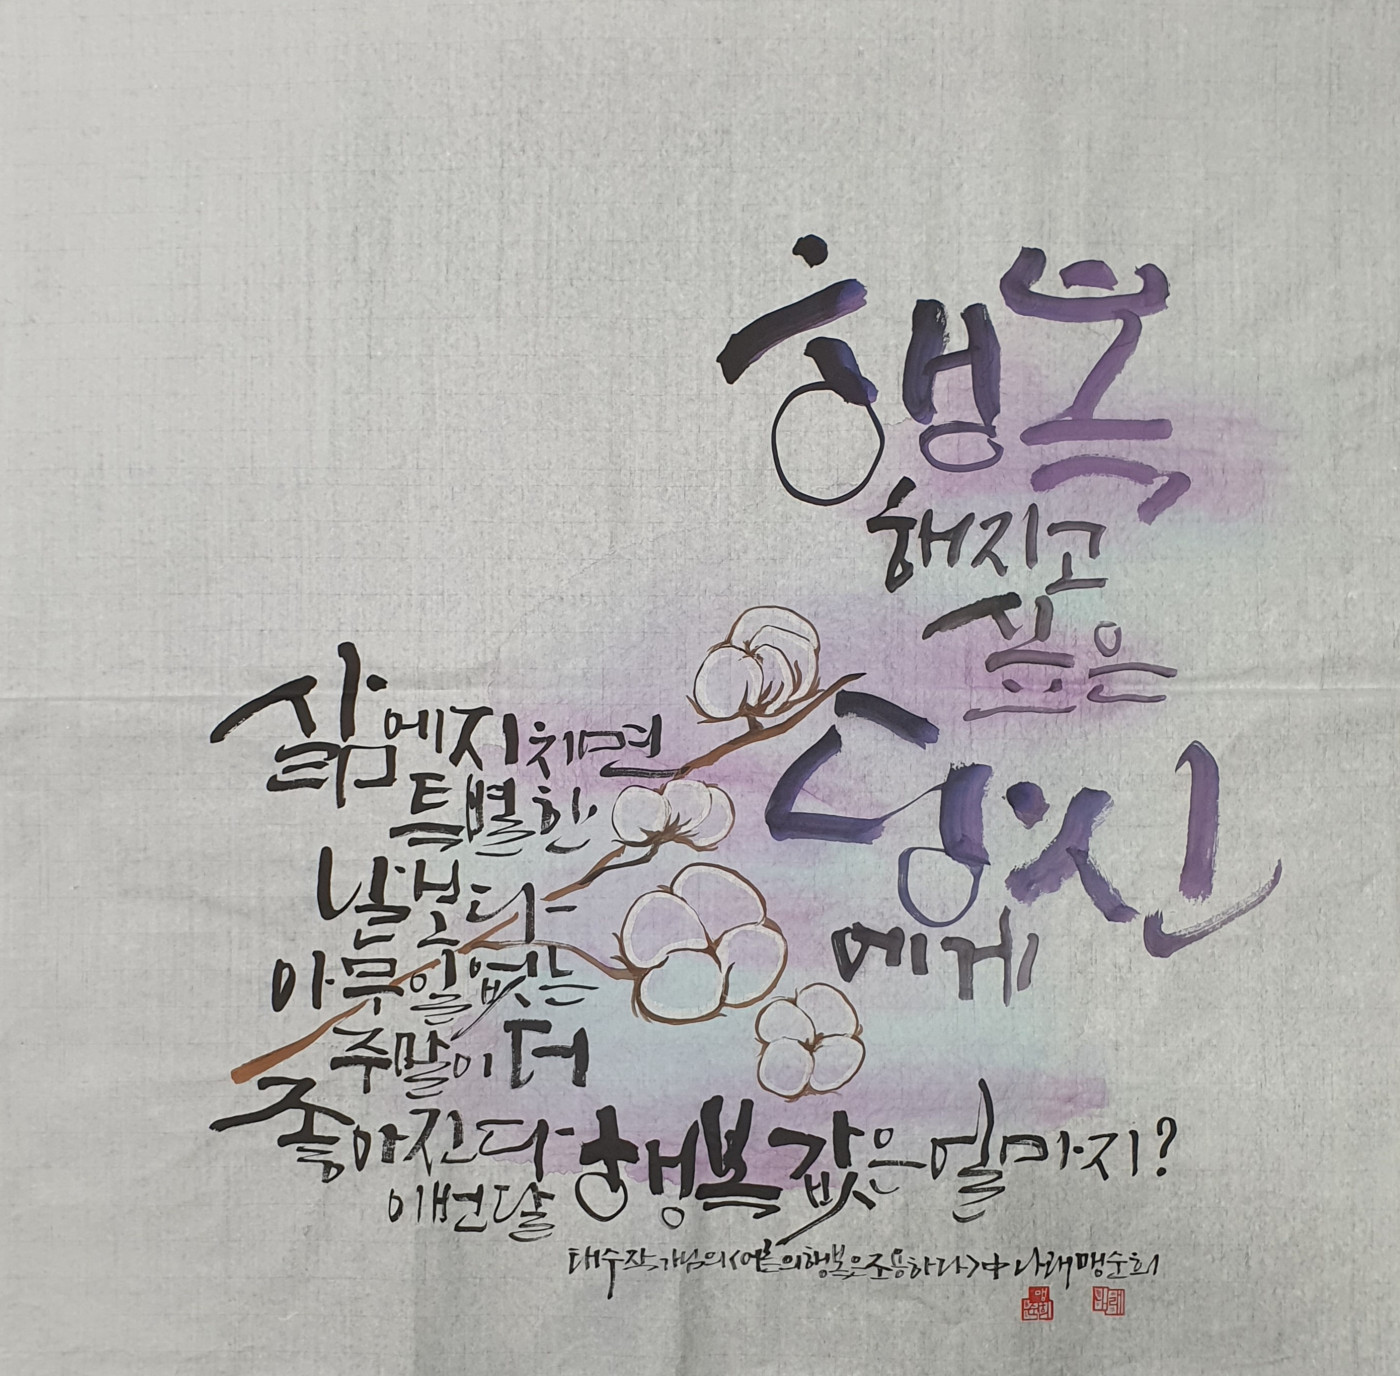 행복
해지고
싶은
당신
에게
삶에 지치면
특별한
날보다
아무 일 없는
주말이 더
좋아진다
이번달 행복 값은 얼마지?
태수 작가님의 <어른의 행복은 조용하다> 中 나래 맹순희
나래